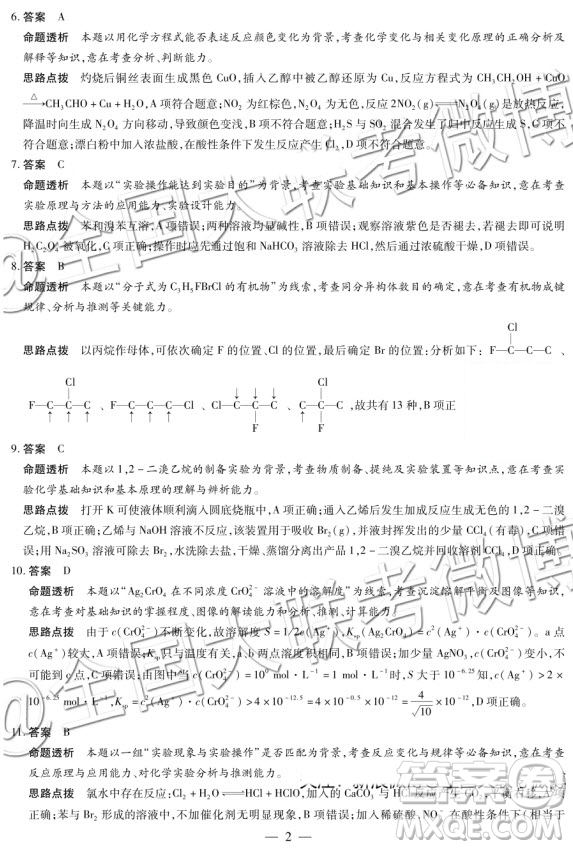 6. 答案 A
命题透析 本题以用化学方程式能否表述反应颜色变化为背景,考查化学变化与相关变化原理的正确分析及
解释等知识,意在考查分析、判断能力。
思路点拨 灼烧后铜丝表面生成黑色 CuO,插入乙醇中被乙醇还原为 Cu,反应方程式为 CH₃CH₂OH + CuO
△→CH₃CHO + Cu + H₂O,A 项符合题意;NO₂ 为红棕色,N₂O₄ 为无色,反应 2NO₂(g)⇌N₂O₄(g)是放热反应,
降温时向生成 N₂O₄ 方向移动,导致颜色变浅,B 项不符合题意;H₂S 与 SO₂ 混合发生了归中反应生成 S,C 项不
符合题意;漂白粉中加入浓盐酸,在酸性条件下发生反应产生 Cl₂,D 项不符合题意。
7. 答案 C
命题透析 本题以“实验操作能达到实验目的”为背景,考查实验基础知识和基本操作等必备知识,意在考查
实验原理与方法的应用能力、实验设计能力。
思路点拨 苯和溴苯互溶,A 项错误;两种溶液均显碱性,B 项错误;观察溶液紫色是否褪去,若褪去则表明
H₂C₂O₄ 被氧化,C 项正确;操作时应先通过饱和 NaHCO₃ 溶液除去 HCl,然后通过浓硫酸干燥,D 项错误。
8. 答案 B
命题透析 本题以“分子式为 C₃H₅FBrCl 的有机物”为线索,考查同分异构体数目的确定,意在考查有机物成键
规律、分析与推测等关键能力。
思路点拨 以丙烷作母体,可依次确定 F 的位置、Cl 的位置,最后确定 Br 的位置:分析如下:
Cl
F—C—C—C、
↑ ↑ ↑
Cl
F—C—C—C、
↑ ↑ ↑
F—C—C—C—Cl、
↑ ↑ ↑
↓ ↓ Cl
Cl—C—C—C、
F
↓
C—C—C
F
,故共有 13 种,B 项正
9. 答案 C
命题透析 本题以 1,2 - 二溴乙烷的制备实验为背景,考查物质制备、提纯及实验装置等知识点,意在考查实
验化学基础知识和基本原理的理解与辨析能力。
思路点拨 打开 K 可使液体顺利滴入圆底烧瓶中,A 项正确;通入乙烯后发生加成反应生成无色的 1,2 - 二溴
乙烷,B 项正确;乙烯与 NaOH 溶液不反应,该装置用于吸收 Br₂(g),并液封挥发出的少量 CCl₄(有毒),C 项错
误;用 Na₂SO₃ 溶液可除去 Br₂,水洗除去盐,干燥、蒸馏分离出产品 1,2 - 二溴乙烷并回收 CCl₄,D 项正确
10. 答案 D
命题透析 本题以“Ag₂CrO₄ 在不同浓度 CrO₄²⁻ 溶液中的溶解度”为线索,考查沉淀溶解平衡及图像等知识,
意在考查对基础知识的掌握程度、图像的解读能力和分析、推测、计算能力。
思路点拨 由于 c(CrO₄²⁻)不断变化,故溶解度 S = 1/2c(Ag⁺),Kₛₚ(Ag₂CrO₄) = c²(Ag⁺)·c(CrO₄²⁻)。a 点
c(Ag⁺)较大,A 项错误;Kₛₚ只与温度有关,a、b 两点温度积相同,B 项错误;加少量 AgNO₃,c(CrO₄²⁻)变小,不
可能到 c 点,C 项错误;由图中当 c(CrO₄²⁻) = 10⁰ mol·L⁻¹ = 1 mol·L⁻¹时,S 大于 10⁻⁶·²⁵ 知,c(Ag⁺)为 2×
10⁻⁶·²⁵ mol·L⁻¹,Kₛₚ = c²(Ag⁺)·c(CrO₄²⁻) > 4×10⁻¹²·⁵ = 4×10⁻⁰·⁵×10⁻¹² = 4/√10 ×10⁻¹²,D 项正确。
11. 答案 B
命题透析 本题以一组“实验现象与实验操作”是否匹配为背景,考查反应变化与规律等必备知识,意在考查
反应原理与应用能力、对化学实验分析与推测能力。
思路点拨 氯水中存在反应:Cl₂ + H₂O⇌HCl + HClO,加入的 CaCO₃ 与 HCl 反应
正确;苯与 Br₂ 形成的溶液中,不加催化剂无明显现象,B 项错误;加入稀硫酸,NO₃⁻ 在酸性条件下(相当于
— 2 —
@全国大联考微博
@全国大联考微博
答案圈
MXQE.COM